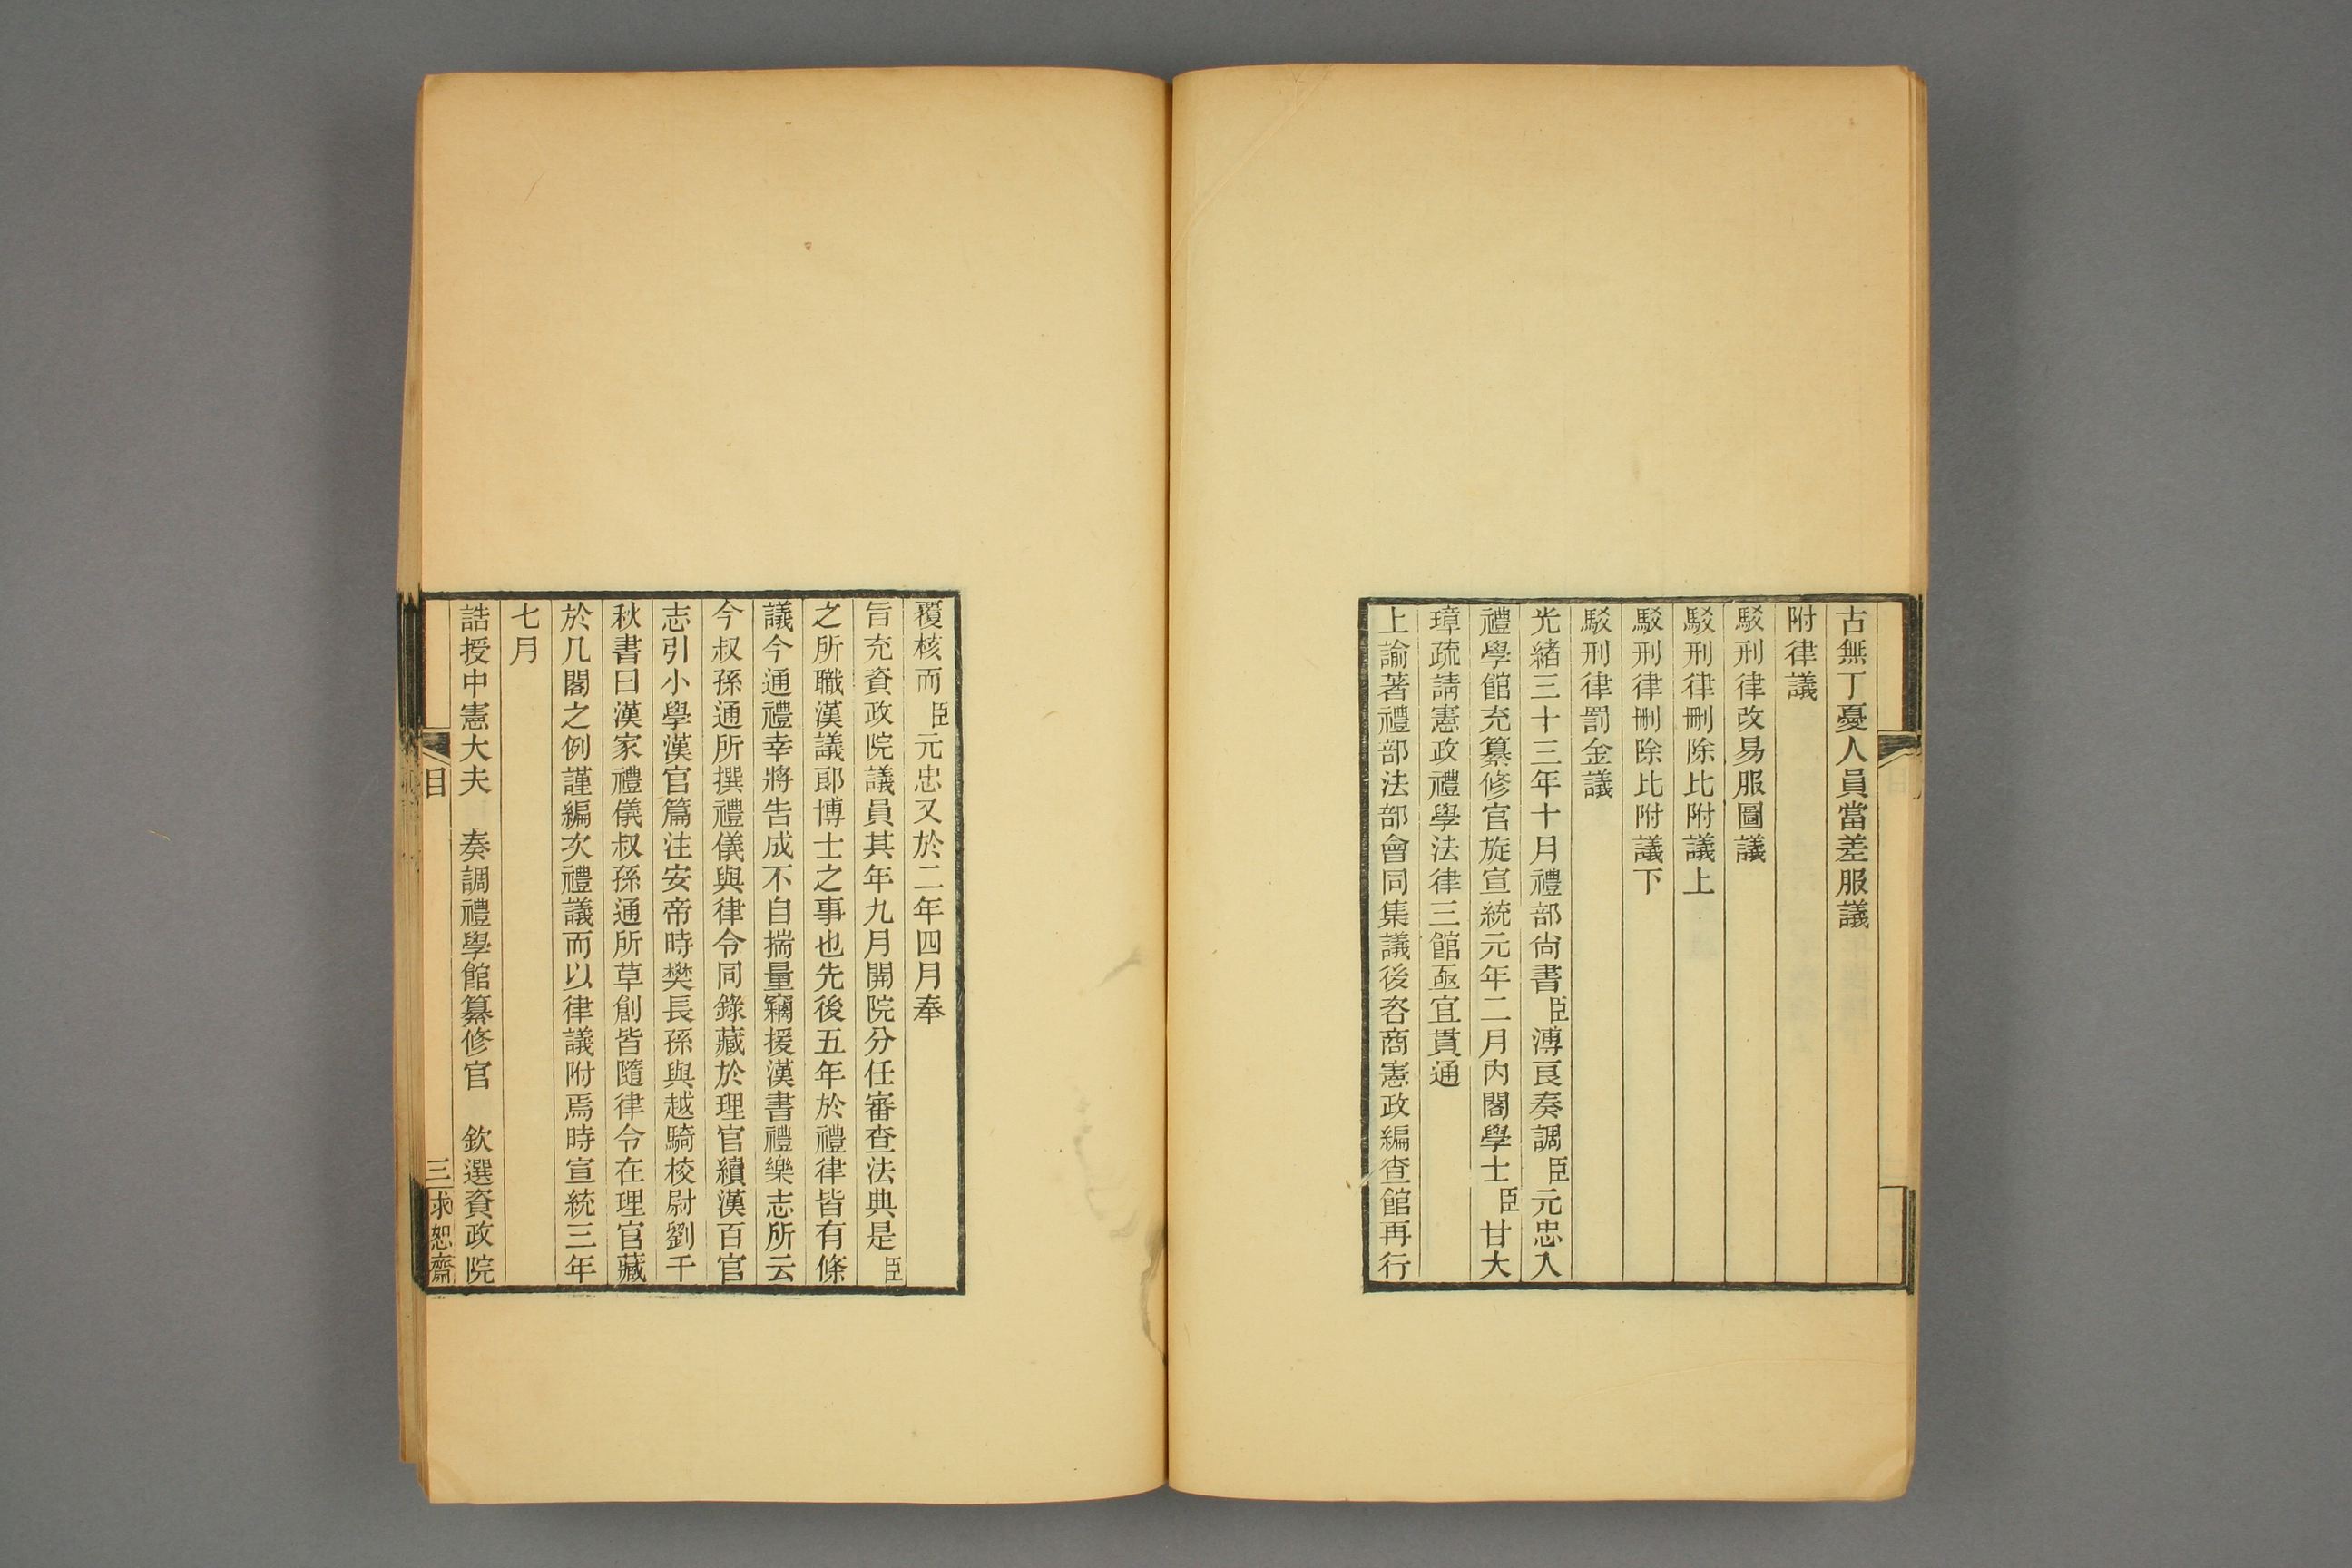 古無丁憂人員當差服議
附律議
駁刑律改易服圖議
駁刑律刪除比附議上
駁刑律刪除比附議下
駁刑律罰金議
光緒三十三年十月禮部尙書臣溥良奏調臣元忠入
禮學館充纂修官旋宣統元年二月內閣學士臣甘大
璋疏請憲政禮學法律三館亟宜貫通
上諭著禮部法部會同集議後咨商憲政編查館再行
覆核而臣元忠又於二年四月奉
旨充資政院議員其年九月開院分任審查法典是臣
之所職漢議郞博士之事也先後五年於禮律皆有條
議今通禮幸將告成不自揣量竊援漢書禮樂志所云
今叔孫通所撰禮儀與律令同錄藏於理官續漢百官
志引小學漢官篇注安帝時樊長孫與越騎校尉劉千
秋書曰漢家禮儀叔孫通所草創皆隨律令在理官藏
於几閣之例謹編次禮議而以律議附焉時宣統三年
七月
誥授中憲大夫 奏調禮學館纂修官 欽選資政院
目 三 求恕齋